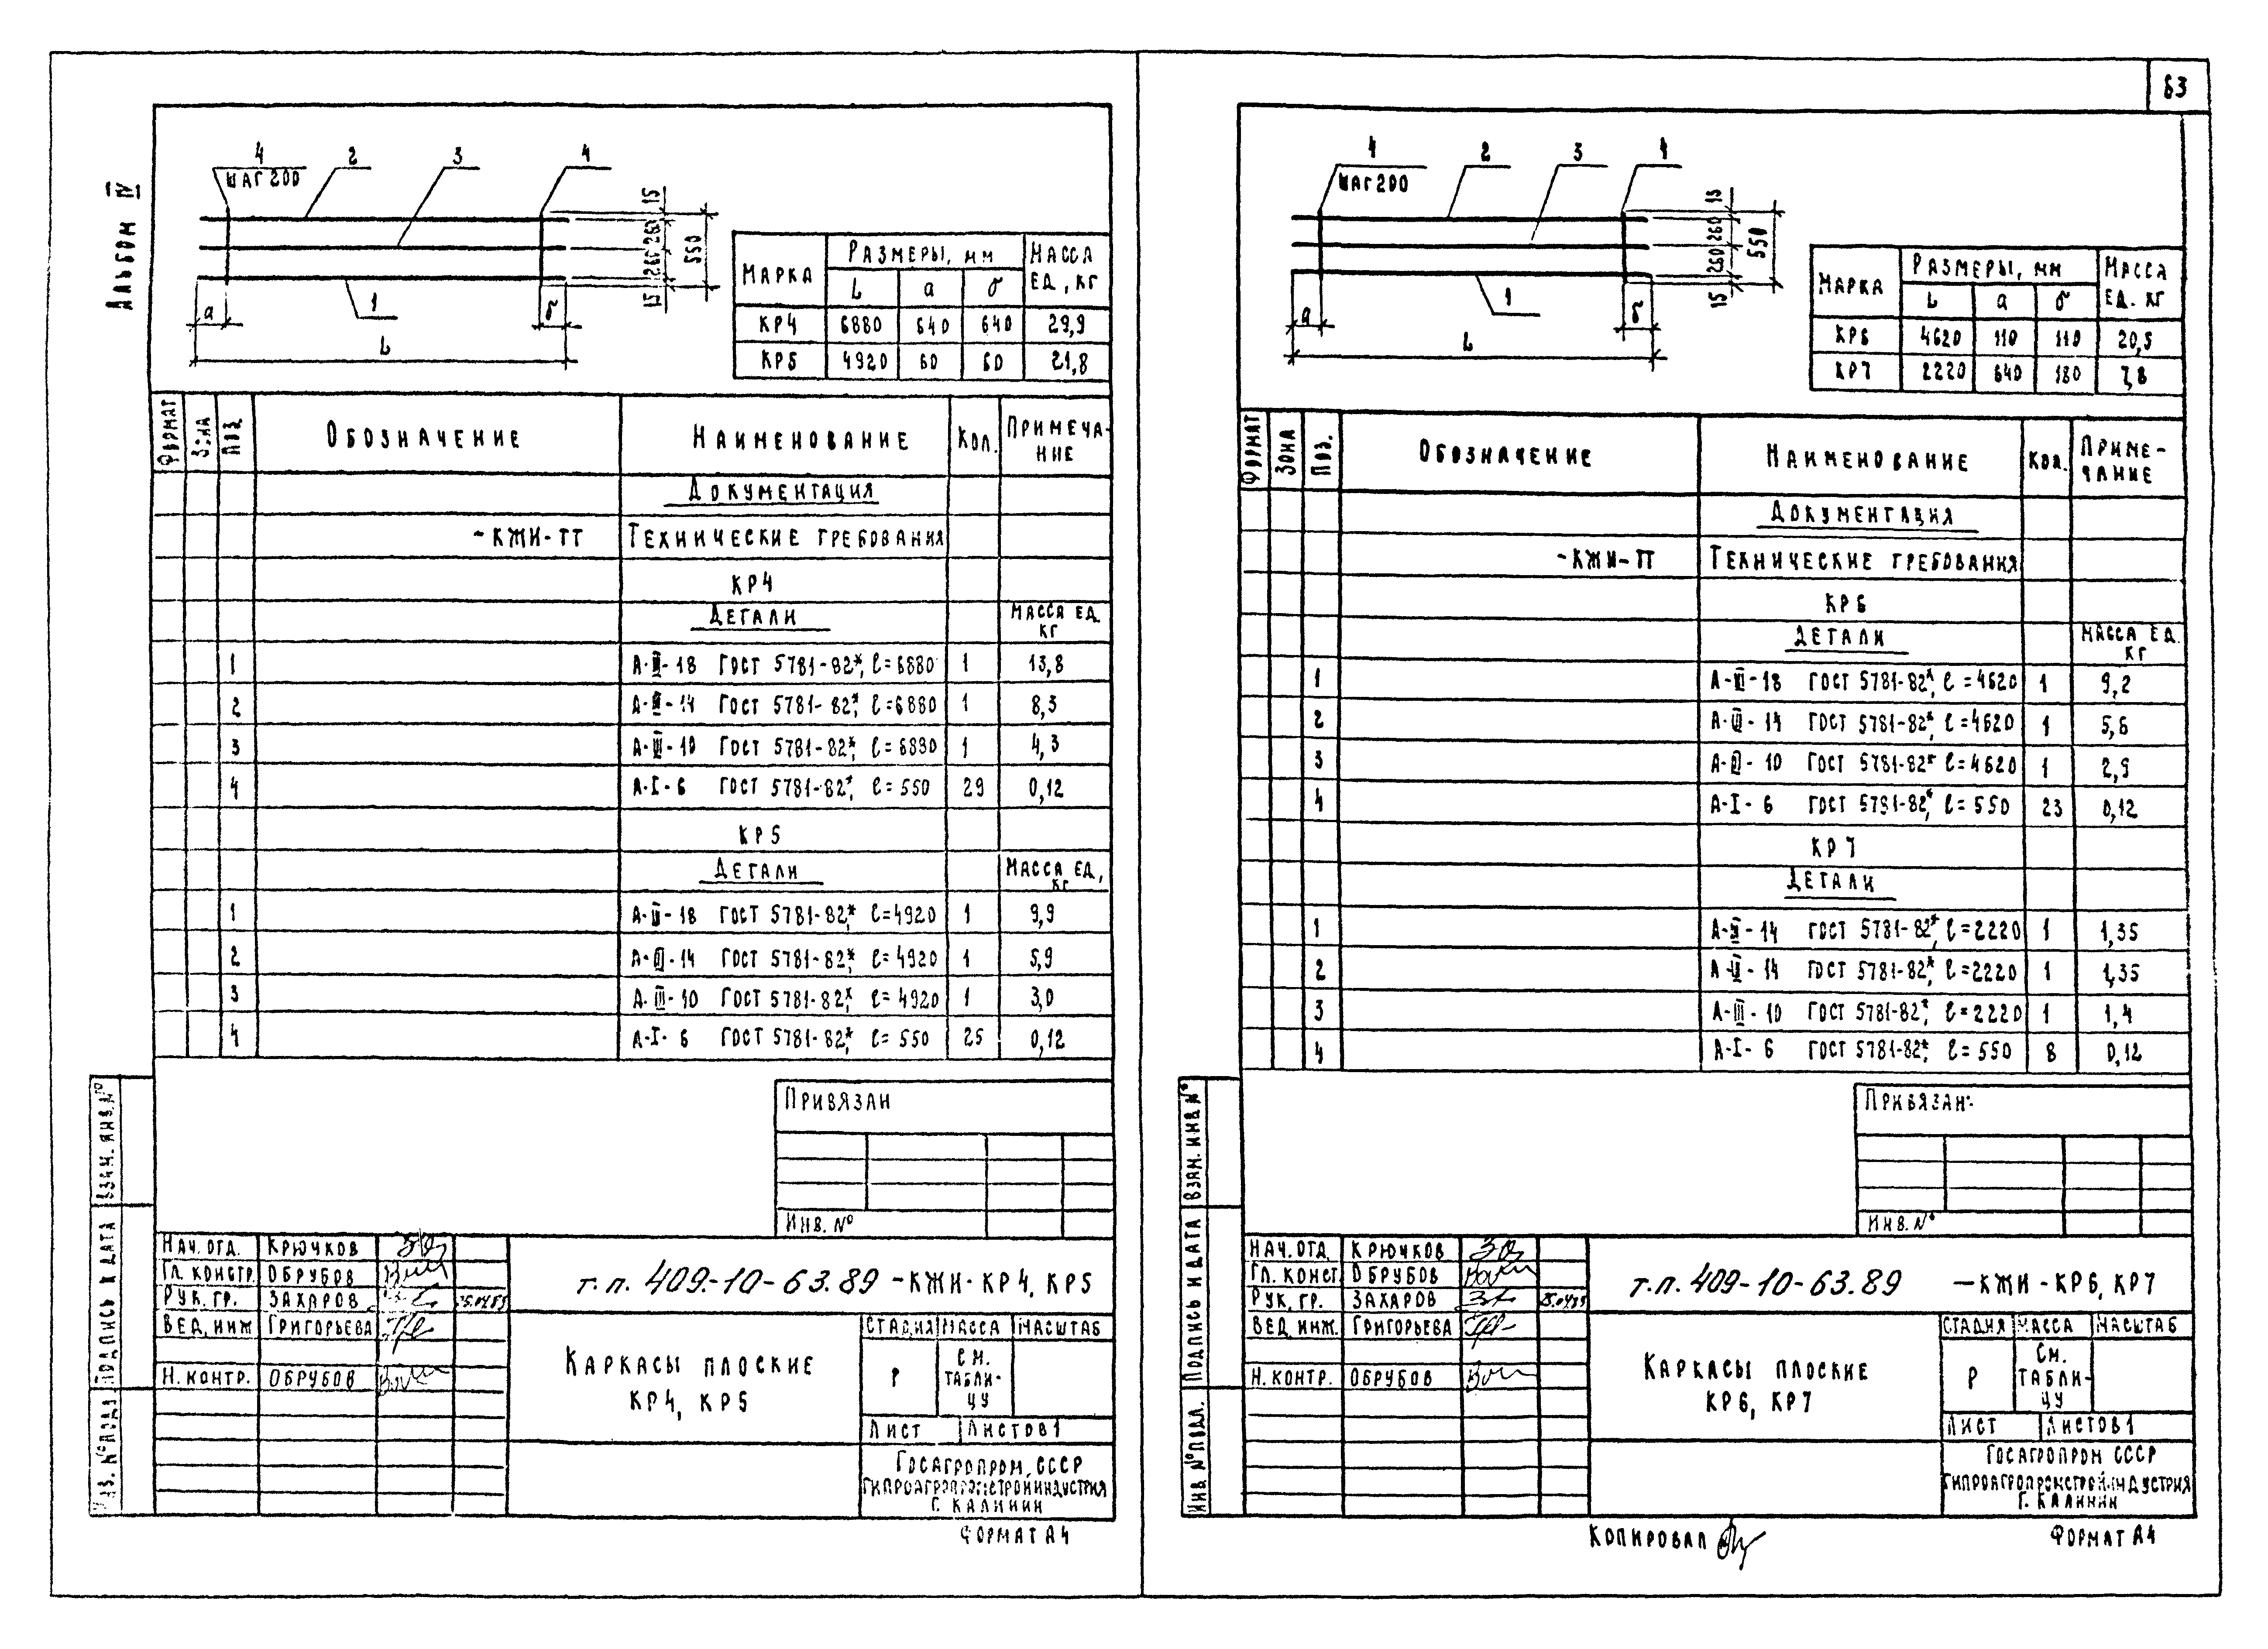 Альбом IV
4 2 3 4
ШАГ 200
15 260 260 15 550
1
а б
L
МАРКА РАЗМЕРЫ, ММ МАССА ЕД., КГ
L а б
КР4 6880 640 640 29,9
КР5 4920 60 60 21,8
ФОРМАТ ЗОНА ПОЗ. ОБОЗНАЧЕНИЕ НАИМЕНОВАНИЕ КОЛ. ПРИМЕЧА-НИЕ
ДОКУМЕНТАЦИЯ
-КЖИ-ТТ ТЕХНИЧЕСКИЕ ТРЕБОВАНИЯ
КР4
ДЕТАЛИ МАССА ЕД. КГ
1 А-III-18 ГОСТ 5781-82*, ℓ=6880 1 13,8
2 А-III-14 ГОСТ 5781-82*, ℓ=6880 1 8,3
3 А-III-10 ГОСТ 5781-82*, ℓ=6880 1 4,3
4 А-I-6 ГОСТ 5781-82*, ℓ=550 29 0,12
КР5
ДЕТАЛИ МАССА ЕД, КГ
1 А-III-18 ГОСТ 5781-82*, ℓ=4920 1 9,9
2 А-III-14 ГОСТ 5781-82*, ℓ=4920 1 5,9
3 А-III-10 ГОСТ 5781-82*, ℓ=4920 1 3,0
4 А-I-6 ГОСТ 5781-82*, ℓ=550 25 0,12
ПРИВЯЗАН
ИНВ. №
ВЗАМ. ИНВ. №
ПОДПИСЬ И ДАТА
ИНВ. № ПОДЛ
НАЧ. ОТД. КРЮЧКОВ
ГЛ. КОНСТР. ОБРУБОВ
РУК. ГР. ЗАХАРОВ
ВЕД. ИНЖ ГРИГОРЬЕВА
Н. КОНТР. ОБРУБОВ
т.п. 409-10-63.89 -КЖИ-КР4, КР5
КАРКАСЫ ПЛОСКИЕ
КР4, КР5
СТАДИЯ МАССА МАСШТАБ
Р СМ. ТАБЛИ-ЦУ
ЛИСТ ЛИСТОВ 1
ГОСАГРОПРОМ СССР
ГИПРОАГРОПРОМСТРОЙИНДУСТРИЯ
Г. КАЛИНИН
ФОРМАТ А4
63
4 2 3 4
ШАГ 200
15 260 260 15 550
1
а б
L
МАРКА РАЗМЕРЫ, ММ МАССА ЕД. КГ
L а б
КР6 4620 110 110 20,5
КР7 2220 640 180 7,8
ФОРМАТ ЗОНА ПОЗ. ОБОЗНАЧЕНИЕ НАИМЕНОВАНИЕ КОЛ. ПРИМЕ-ЧАНИЕ
ДОКУМЕНТАЦИЯ
-КЖИ-ТТ ТЕХНИЧЕСКИЕ ТРЕБОВАНИЯ
КР6
ДЕТАЛИ МАССА ЕД. КГ
1 А-III-18 ГОСТ 5781-82*, ℓ=4620 1 9,2
2 А-III-14 ГОСТ 5781-82*, ℓ=4620 1 5,6
3 А-III-10 ГОСТ 5781-82* ℓ=4620 1 2,9
4 А-I-6 ГОСТ 5781-82*, ℓ=550 23 0,12
КР7
ДЕТАЛИ
1 А-III-14 ГОСТ 5781-82*, ℓ=2220 1 1,35
2 А-III-14 ГОСТ 5781-82*, ℓ=2220 1 1,35
3 А-III-10 ГОСТ 5781-82*, ℓ=2220 1 1,4
4 А-I-6 ГОСТ 5781-82*, ℓ=550 8 0,12
ПРИВЯЗАН
ИНВ. №
ВЗАМ. ИНВ №
ПОДПИСЬ И ДАТА
ИНВ № ПОДЛ.
НАЧ. ОТД КРЮЧКОВ
ГЛ. КОНСТ ОБРУБОВ
РУК. ГР. ЗАХАРОВ
ВЕД ИНЖ. ГРИГОРЬЕВА
Н. КОНТР. ОБРУБОВ
т.п. 409-10-63.89 -КЖИ-КР6, КР7
КАРКАСЫ ПЛОСКИЕ
КР6, КР7
СТАДИЯ МАССА МАСШТАБ
Р СМ. ТАБЛИ-ЦУ
ЛИСТ ЛИСТОВ 1
ГОСАГРОПРОМ СССР
ГИПРОАГРОПРОМСТРОЙИНДУСТРИЯ
Г. КАЛИНИН
КОПИРОВАЛ
ФОРМАТ А4